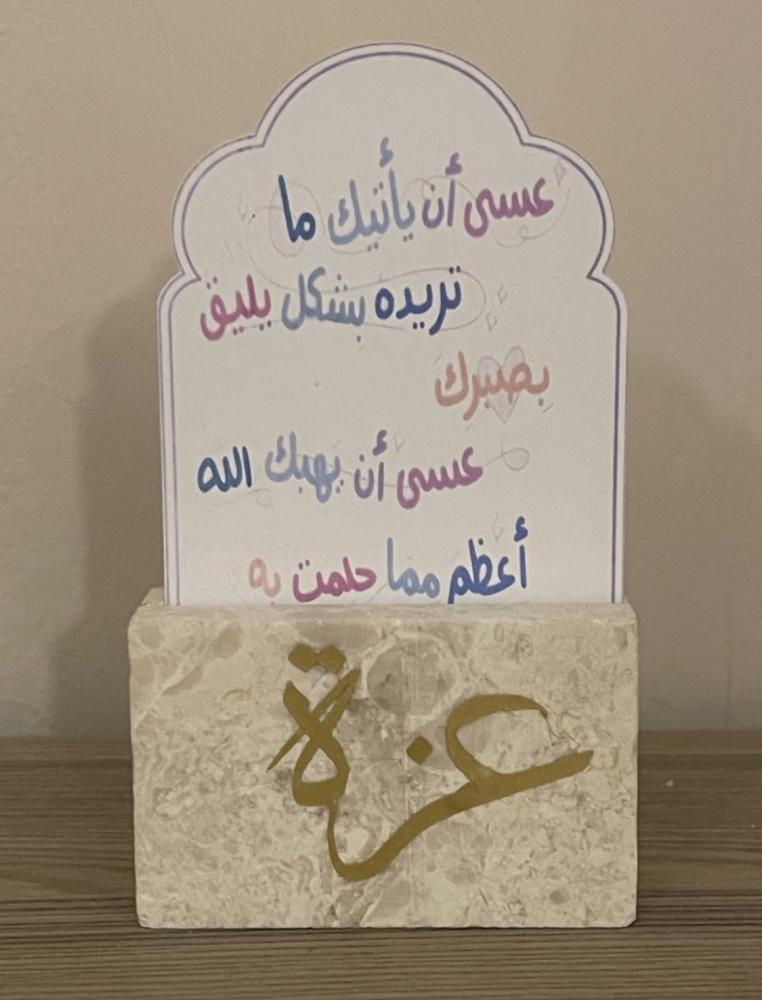 عسى أن يأتيك ما
تريده بشكل يليق
بصبرك
عسى أن يهبك الله
أعظم مما حلمت به
عزة